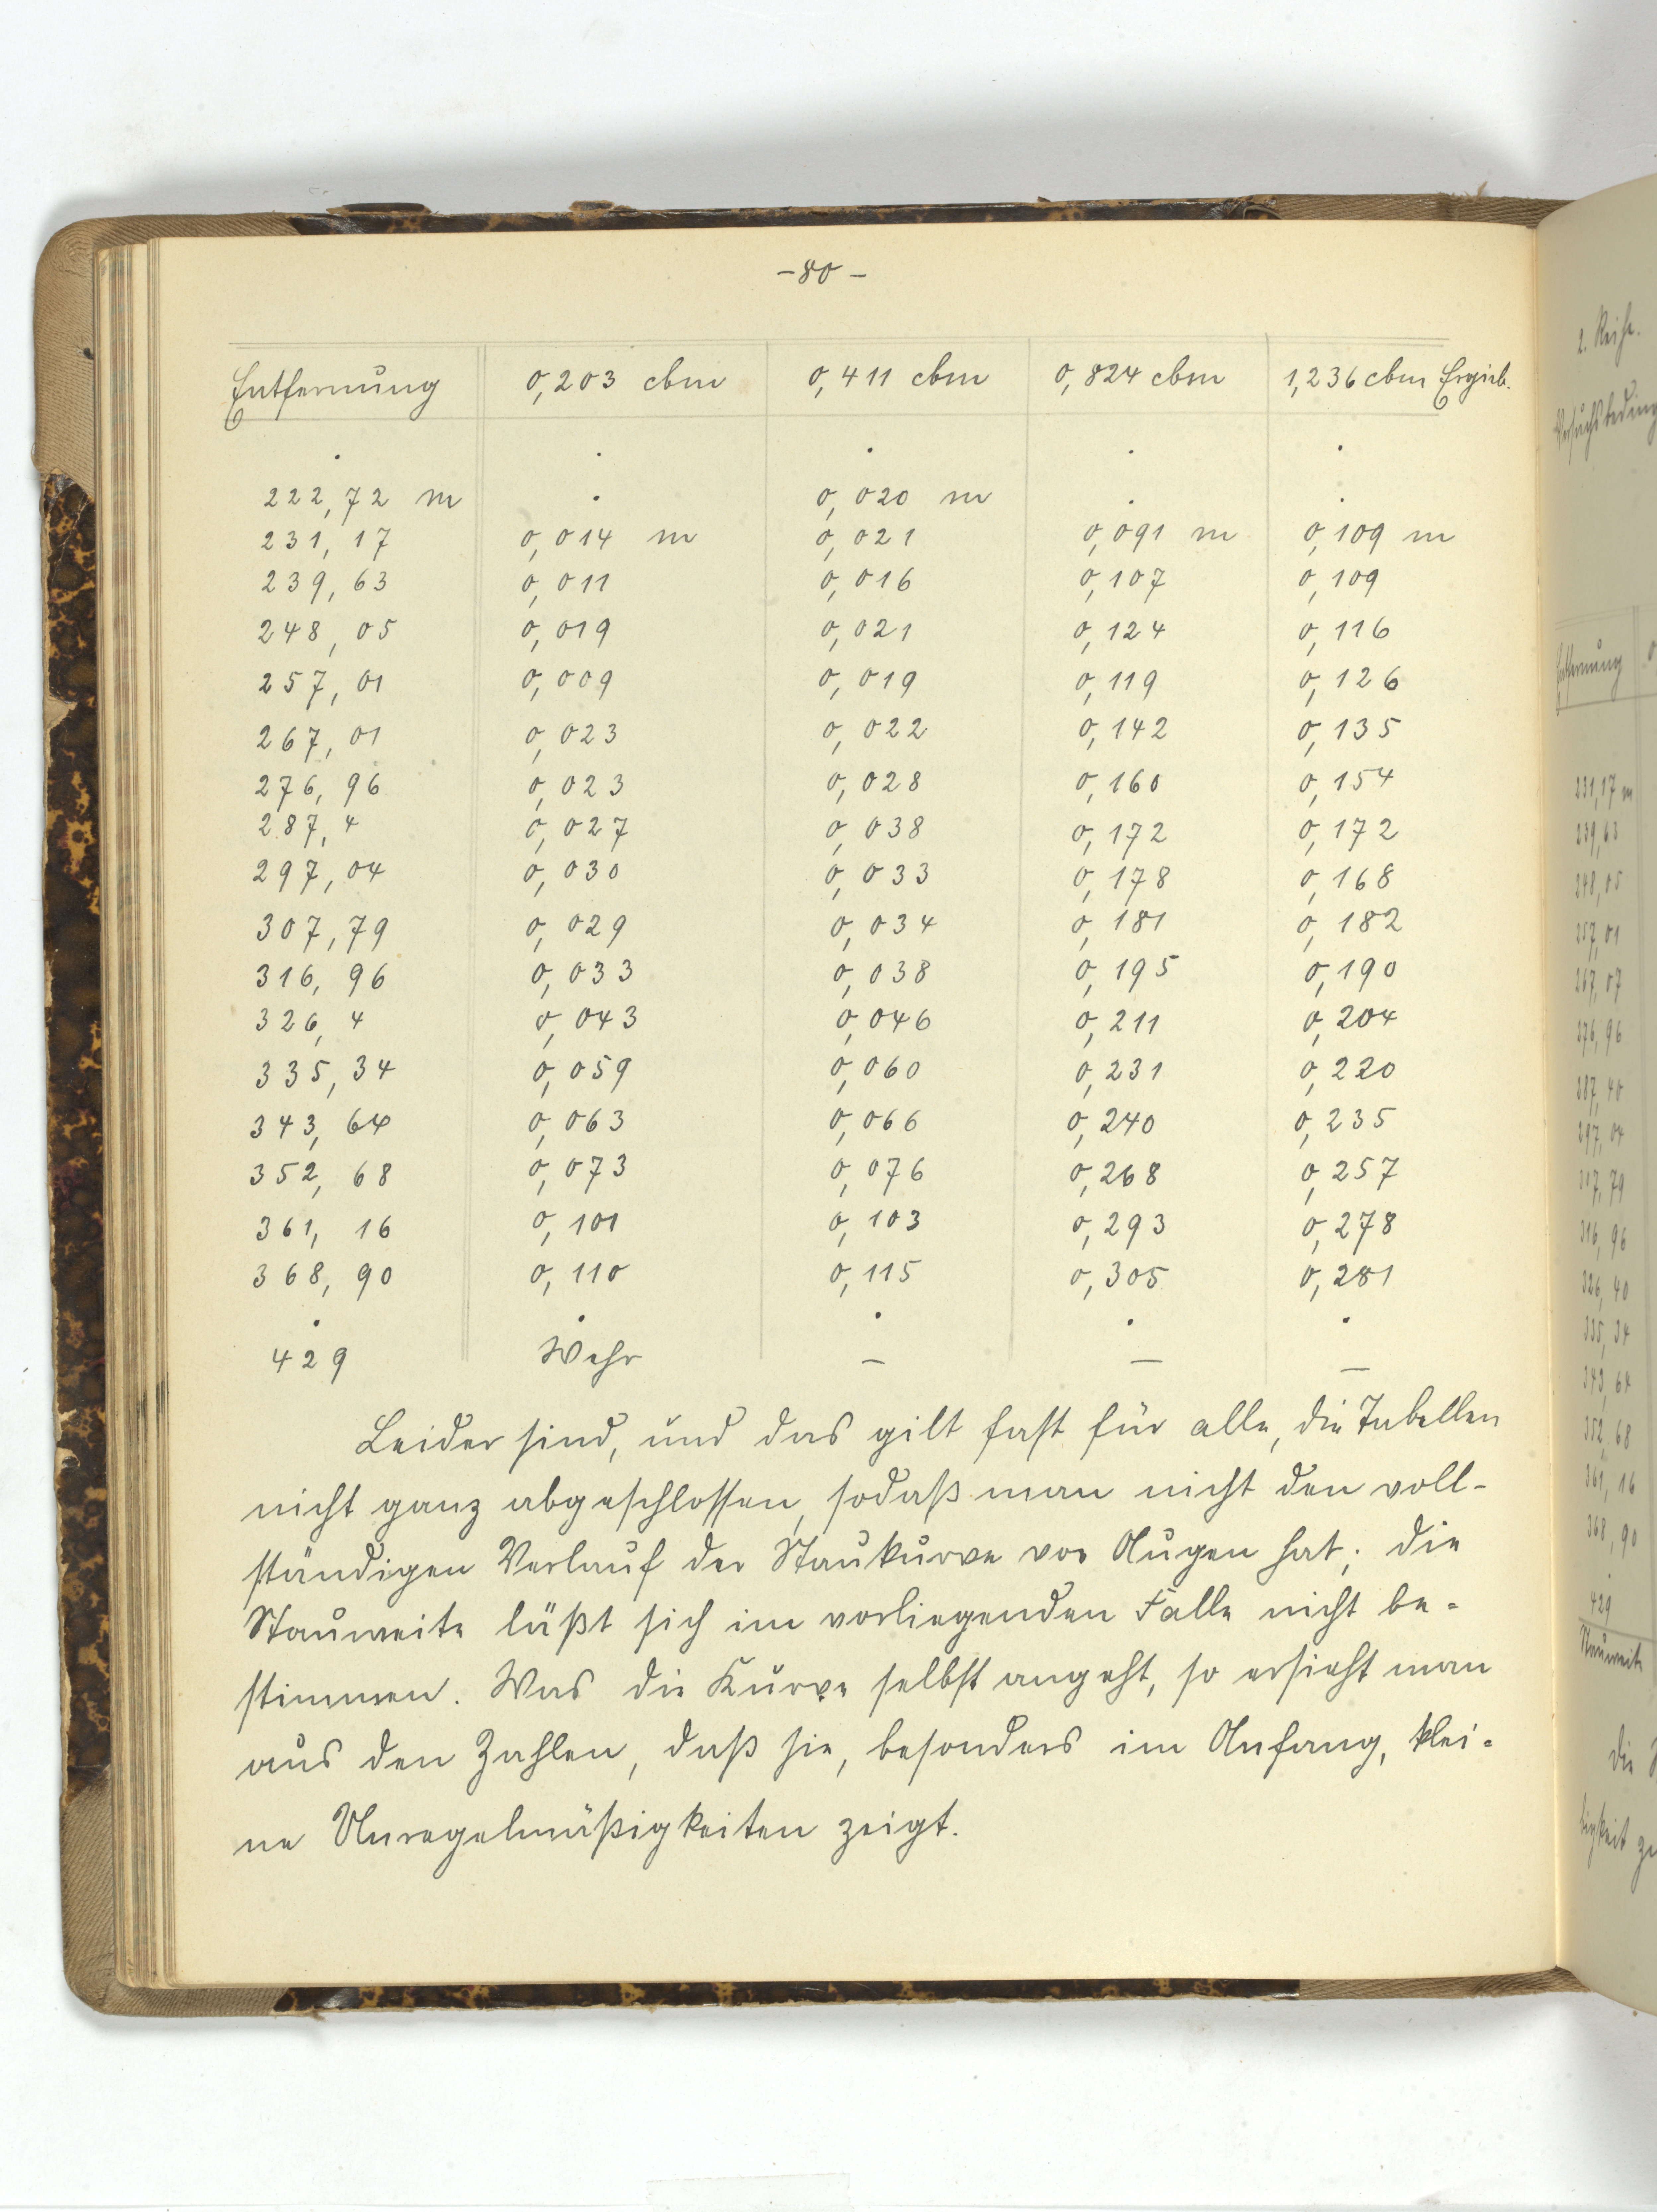 -80-
Entfernung 0,203 cbm 0,411 cbm 0,824 cbm 1,236 cbm Ergieb.
. . . . .
222,72 m . 0,020 m . .
231,17 0,014 m 0,021 0,091 m 0,109 m
239,63 0,011 0,016 0,107 0,109
248,05 0,019 0,021 0,124 0,116
257,01 0,009 0,019 0,119 0,126
267,01 0,023 0,022 0,142 0,135
276,96 0,023 0,028 0,160 0,154
287,4 0,027 0,038 0,172 0,172
297,04 0,030 0,033 0,178 0,168
307,79 0,029 0,034 0,181 0,182
316,96 0,033 0,038 0,195 0,190
326,4 0,043 0,046 0,211 0,204
335,34 0,059 0,060 0,231 0,220
343,64 0,063 0,066 0,240 0,235
352,68 0,073 0,076 0,268 0,257
361,16 0,101 0,103 0,293 0,278
368,90 0,110 0,115 0,305 0,281
. . . . .
429 Wehr — — —
Leider sind, und das gilt fast für alle, die Tabellen
nicht ganz abgeschlossen, sodaß man nicht den voll-
ständigen Verlauf der Staukurve vor Augen hat; die
Stauweite läßt sich im vorliegenden Falle nicht be-
stimmen. Was die Kurve selbst angeht, so ersieht man
aus den Zahlen, daß sie, besonders im Anfang, klei-
ne Unregelmäßigkeiten zeigt.
2. Reihe.
Versuchsbeding
Entfernung 0
231,17 m
239,63
248,05
257,01
267,07
276,96
287,40
297,04
317,79
316,96
326,40
335,34
343,64
352,68
361,16
368,90
.
429
Stauweite
Die
ligkeit zu